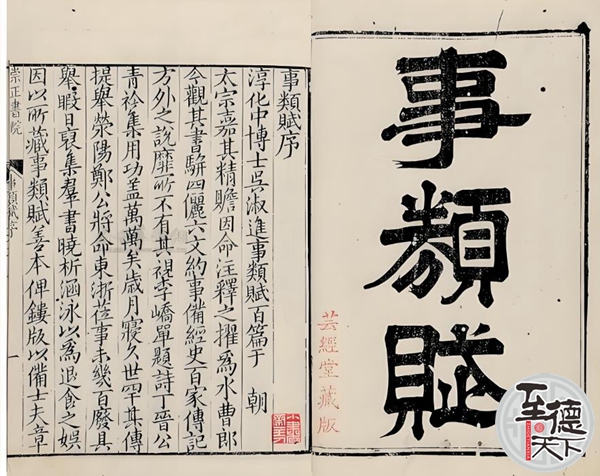 事類賦
芸經堂藏版
事類賦序
淳化中博士吳淑進事類賦百篇于 朝
太宗嘉其精贍因命注釋之擢爲水曹郎
今觀其書騈四儷六文約事備經史百家傳記
方外之說靡所不有其視李嶠單題詩丁晉公
青衿集用功蓋萬萬矣歲月寖久世罕其傳
提舉滎陽鄭公將命東浙莅事未幾百廢具
舉暇日裒集羣書曉析涵泳以爲退食之娛
因以所藏事類賦善本俾鏤版以備士夫章
崇正書院
事類賦序
一
至德天下